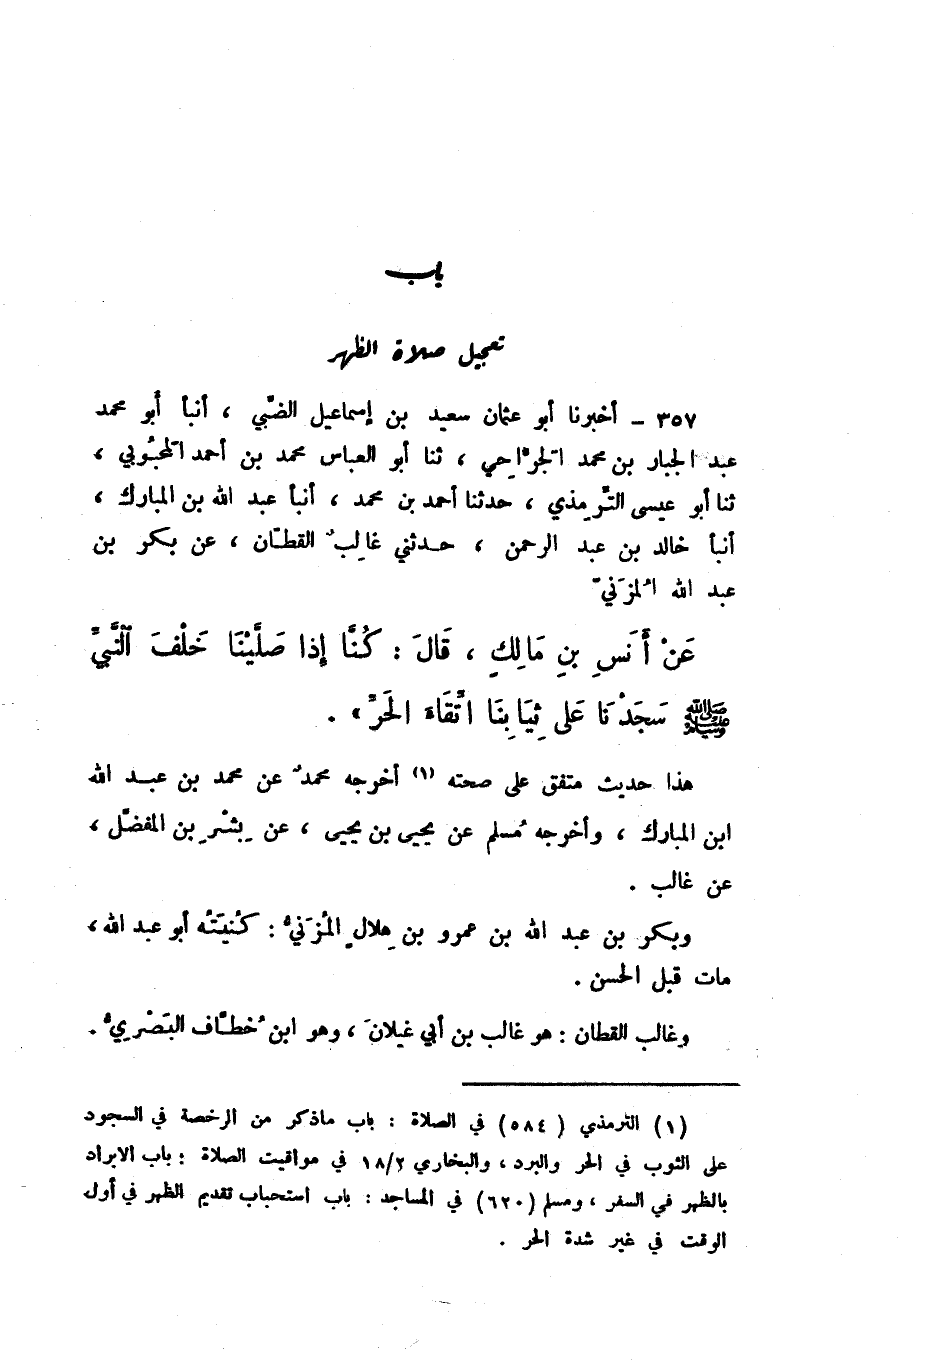 باب
تعجيل صلاة الظهر
٣٥٧ - أخبرنا أبو عثمان سعيد بن إسماعيل الضَّبي ، أنبأ أبو محمد
عبد الجبار بن محمد الجَرَّاحِي ، ثنا أبو العباس محمد بن أحمد المحبُوبي ،
ثنا أبو عيسى التِّرمذي ، حدثنا أحمد بن محمد ، أنبأ عبد الله بن المبارك ،
أنبأ خالد بن عبد الرحمن ، حدثني غالِبٌ القطَّان ، عن بكر بن
عبد الله المُزَنيّ
عَنْ أَنَسِ بنِ مَالِكٍ ، قَالَ : كُنَّا إِذا صَلَّيْنَا خَلْفَ ٱلنَّبِيِّ
ﷺ سَجَدْنَا عَلى ثِيَابِنَا اتِّقَاءَ الحَرِّ » .
هذا حديث متفق على صحته (١) أخرجه محمدٌ عن محمد بن عبد الله
ابن المبارك ، وأخرجه مُسلم عن يحيى بن يحيى ، عن بِشْرِ بن المفضَّل ،
عن غالب .
وبكر بن عبد الله بن عمرو بن هِلالٍ المُزَنيُّ : كُنيَتُه أبو عبد الله ،
مات قبل الحسن .
وغالب القطان : هو غالب بن أبي غيلانَ ، وهو ابن خُطَّاف البَصْريُّ .
(١) الترمذي ( ٥٨٤ ) في الصلاة : باب ماذكر من الرخصة في السجود
على الثوب في الحر والبرد ، والبخاري ١٨/٢ في مواقيت الصلاة : باب الابراد
بالظهر في السفر ، ومسلم (٦٢٠) في المساجد : باب استحباب تقديم الظهر في أول
الوقت في غير شدة الحر .